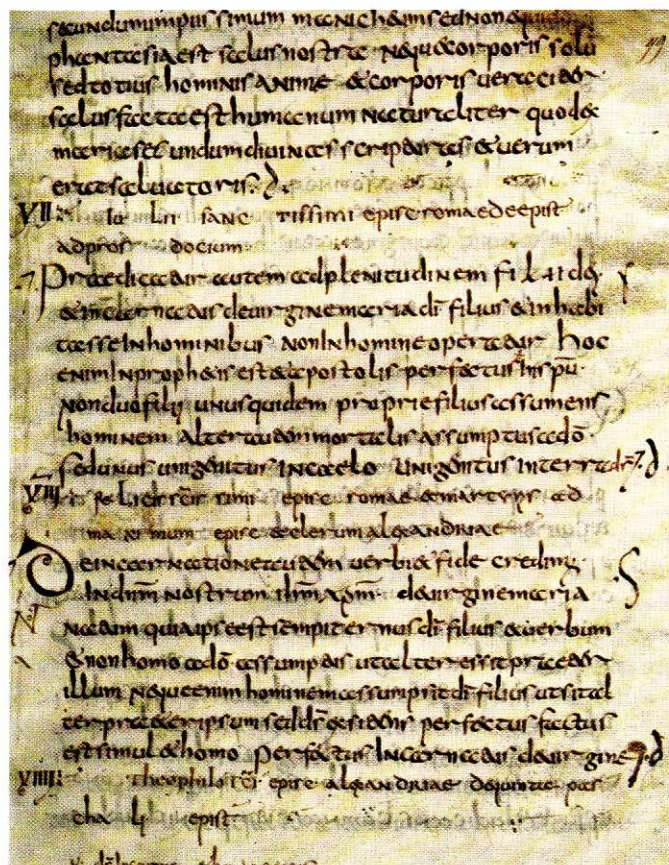 secundum impiissimum manicheum sed non
phantasia est salus nostra neque corporis solū
sed totius hominis anime & corporis veraciter
salus facta est humanum naturaliter quod ex
maria secundum divinas scripturas & verum
erat salvatoris.
VII: Iu lii sanc tissimi episc romae de epist
ad pros docium
Praedicatur autem ad plenitudinem filii dī
& incarnatus de virgine maria dī filius & inhabi
tasse in hominibus non in homine operatur hoc
enim in prophetis est & apostolis perfectus in spū
non duo filii unus quidem proprie filius assumens
hominem alter autem mortalis assumptus a dō
sed unus unigenitus in caelo unigenitus in terra ds
VIII: fe licis sci simi episc romae & martyris ad
maximum episc & clerum alexandriae
De incarnatione autem verbi & fide credimus
in dnm nostrum ihm xpm de virgine maria
natum quia ipse est sempiternus dī filius & verbum
& non homo a dō assumptus ut alter essit praeter
illum neque enim hominem assumpsit dī filius ut sit al
ter praeter ipsum sed ds existens perfectus factus
est simul & homo perfectus incarnatus de virgine
VIIII: theophili sci episc alexandriae de quinta pas
cha li epist